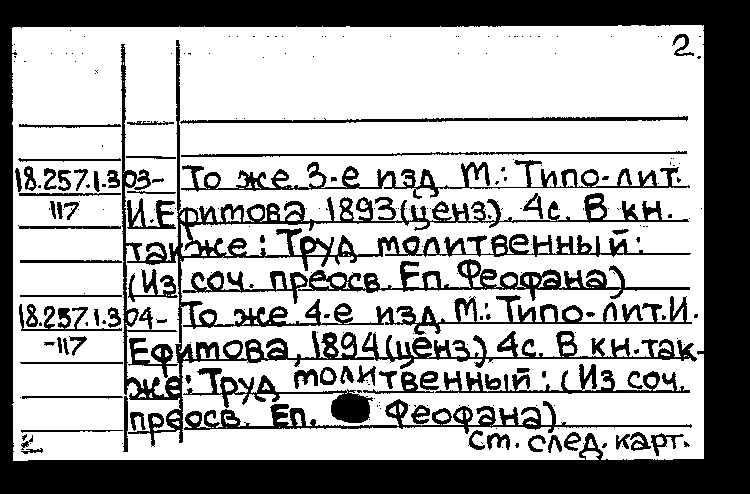 2.
18.257.1.3 03- То же. 3-е изд. М.: Типо-лит.
117 И. Ефимова, 1893 (ценз.). 4с. В кн.
также: Труд молитвенный:
(Из соч. преосв. Еп. Феофана)
18.257.1.3 04- То же. 4-е изд. М.: Типо-лит. И.
-117 Ефимова, 1894 (ценз.). 4с. В кн. так-
же: Труд молитвенный: (Из соч.
преосв. Еп. Феофана).
См. след. карт.